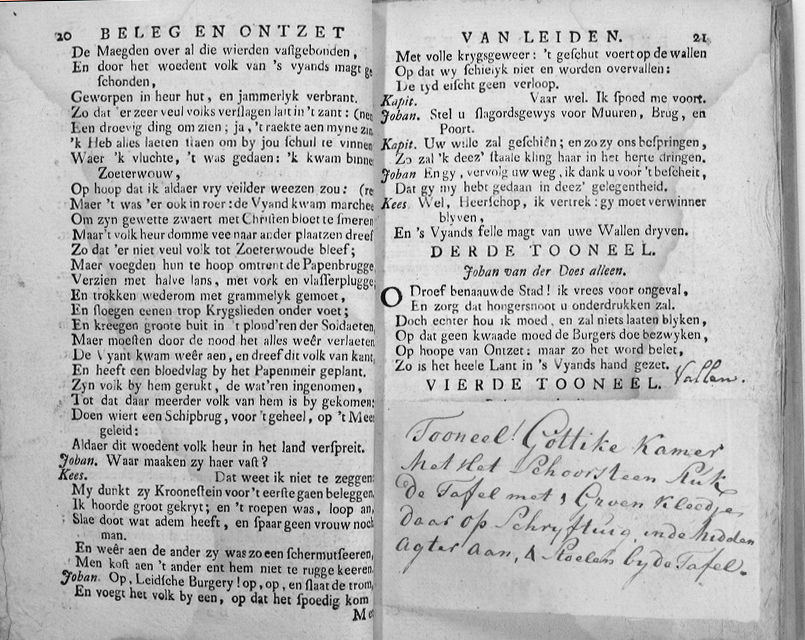 20 BELEG EN ONTZET
De Maegden over al die wierden vaſtgebonden,
En door het woedent volk van 's vyands magt
ſchonden,
Geworpen in heur hut, en jammerlyk verbrant.
Zo dat 'er zeer veul volks verſlagen lait in 't zant:
Een droevig ding om zien; ja, 't raekte aen myne
'k Heb alles laeten ſtaen om by jou ſchuil te vinnen
Waer 'k vluchte, 't was gedaen: 'k kwam binne
Zoeterwouw,
Op hoop dat ik aldaer vry veilder weezen zou:
Maer 't was 'er ook in roer: de Vyand kwam marchee
Om zyn gewette zwaert met Chriſten bloet te ſmeren
Maar 't volk heur domme vee naar ander plaatzen dreef
Zo dat 'er niet veul volk tot Zoeterwoude bleef;
Maer voegden hun te hoop omtrent de Papenbrugge
Verzien met halve lans, met vork en vlaſſerplugge
En trokken wederom met grammelyk gemoet,
En ſloegen eenen trop Krygslieden onder voet;
En kreegen groote buit in 't plond'ren der Soldaeten,
Maer moeſten door de nood het alles weêr verlaeten
De Vyant kwam weêr aen, en dreef dit volk van kant,
En heeft een bloedvlag by het Papenmeir geplant.
Zyn volk by hem gerukt, de wat'ren ingenomen,
Tot dat daar meerder volk van hem is by gekomen:
Doen wiert een Schipbrug, voor 't geheel, op 't Mee
geleid:
Aldaer dit woedent volk heur in het land verſpreit.
Joban. Waar maaken zy haer vaſt?
Kees. Dat weet ik niet te zeggen
My dunkt zy Krooneſtein voor 't eerſte gaen beleggen
Ik hoorde groot gekryt; en 't roepen was, loop an,
Slae doot wat adem heeft, en ſpaar geen vrouw noch
man.
En weêr aen de ander zy was zo een ſchermutſeeren,
Men koſt aen 't ander ent hem niet te rugge keeren.
Joban. Op, Leidſche Burgery! op, op, en ſlaat de trom,
En voegt het volk by een, op dat het ſpoedig kom
Me
VAN LEIDEN. 21
Met volle krygsgeweer: 't geſchut voert op de wallen
Op dat wy ſchielyk niet en worden overvallen:
De tyd eiſcht geen verloop.
Kapit. Vaar wel. Ik ſpoed me voort.
Joban. Stel u ſlagordsgewys voor Muuren, Brug, en
Poort.
Kapit. Uw wille zal geſchiên; en zo zy ons beſpringen,
Zo zal 'k deez' ſtaale kling haar in het herte dringen.
Joban En gy, vervolg uw weg, ik dank u voor 't beſcheit,
Dat gy my hebt gedaan in deez' gelegentheid.
Kees. Wel, Heerſchop, ik vertrek: gy moet verwinner
blyven,
En 's Vyands felle magt van uwe Wallen dryven.
DERDE TOONEEL.
Joban van der Does alleen.
O Droef benaauwde Stad! ik vrees voor ongeval,
En zorg dat hongersnoot u onderdrukken zal.
Doch echter hou ik moed, en zal niets laaten blyken,
Op dat geen kwaade moed de Burgers doe bezwyken,
Op hoope van Ontzet: maar zo het word belet,
Zo is het heele Lant in 's Vyands hand gezet.
Vallen.
VIERDE TOONEEL.
Tooneel! Gottike Kamer
Met Het Schoorsteen Stuk
De Tafel met 1 Groen Kleedje
daar op Schryftuig, in de midden
Agter aan, 4 Stoelen by de Tafel.